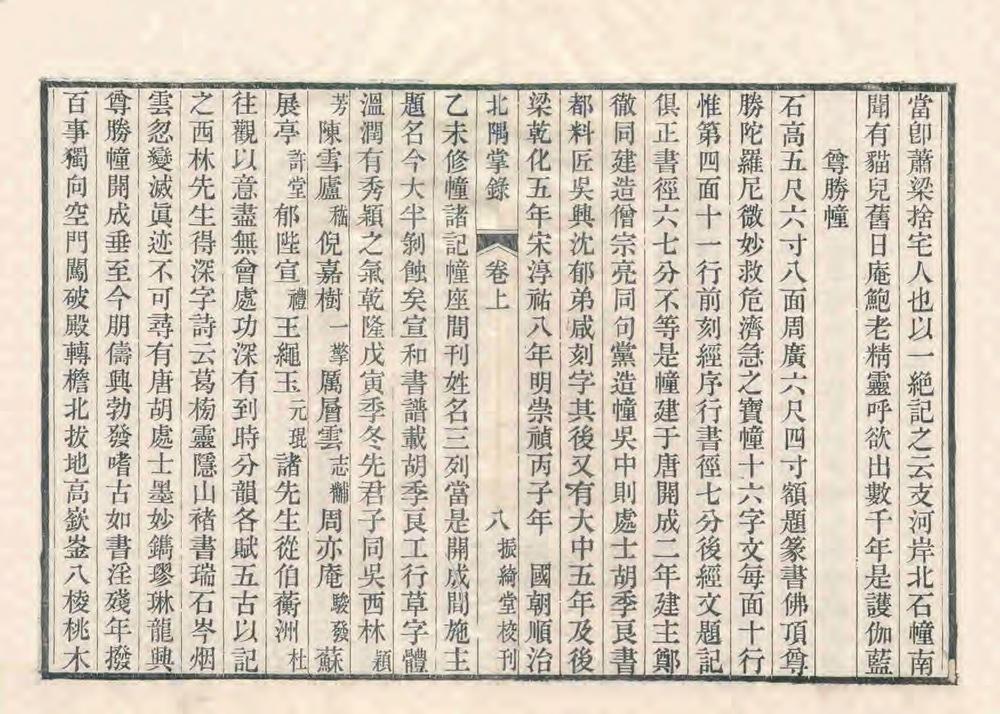 當卽蕭梁捨宅人也以一絶記之云支河岸北石幢南
聞有貓兒舊日庵鮑老精靈呼欲出數千年是護伽藍
尊勝幢
石高五尺六寸八面周廣六尺四寸額題篆書佛頂尊
勝陀羅尼微妙救危濟急之寶幢十六字文每面十行
惟第四面十一行前刻經序行書徑七分後經文題記
俱正書徑六七分不等是幢建于唐開成二年建主鄭
徹同建造僧宗亮同句黨造幢吳中則處士胡季良書
都料匠吳興沈郁弟咸刻字其後又有大中五年及後
梁乾化五年宋淳祐八年明崇禎丙子年　國朝順治
北隅掌錄　卷上　八　振綺堂校刊
乙未修幢諸記幢座間刊姓名三列當是開成間施主
題名今大半剝蝕矣宣和書譜載胡季良工行草字體
溫潤有秀穎之氣乾隆戊寅季冬先君子同吳西林穎
芳陳雪廬嵇倪嘉樹一擎厲層雲志黼周亦庵駿發蘇
展亭許堂郁陛宣禮王繩玉元琨諸先生從伯蘅洲杜
往觀以意盡無會處功深有到時分韻各賦五古以記
之西林先生得深字詩云葛栁靈隱山褚書瑞石岑烟
雲忽變滅眞迹不可尋有唐胡處士墨妙鐫璆琳龍興
尊勝幢開成垂至今朋儔興勃發嗜古如書淫殘年撥
百事獨向空門闖破殿轉檐北拔地高嶔崟八棱桃木